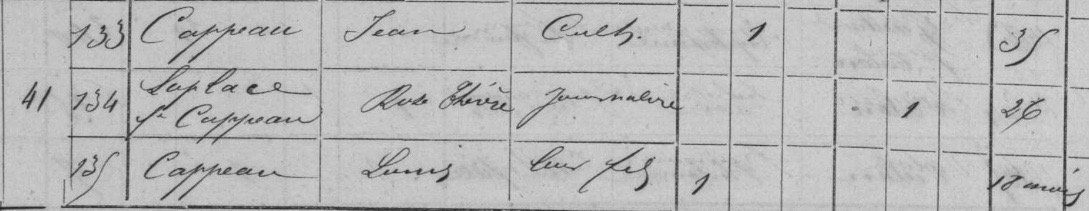 133 Cappeau Jean Cult. 1 35
41 134 Laplace fe Cappeau Rose Thérèse journalière 1 26
135 Cappeau Louis leur fils 1 18 mois